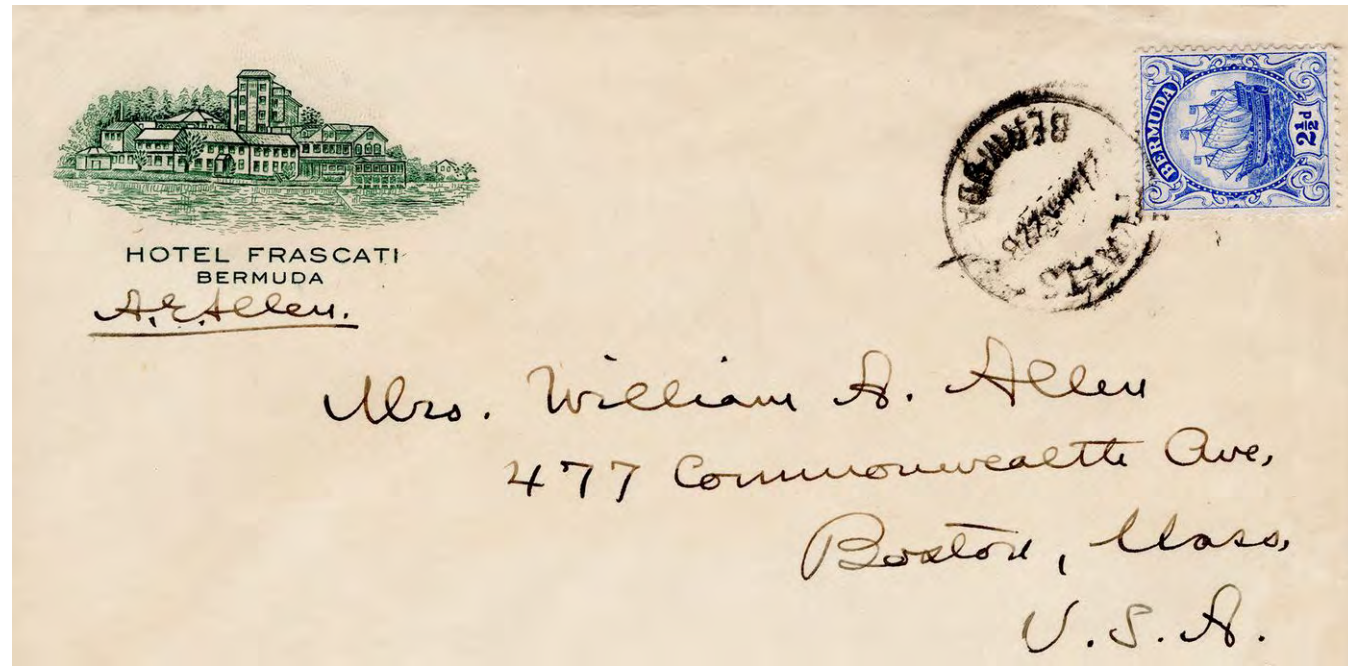 HOTEL FRASCATI
BERMUDA
A. E. Allen.
BERMUDA
FLATTS
BERMUDA
2½d
Mrs. William A. Allen
477 Commonwealth Ave,
Boston, Mass,
U.S.A.